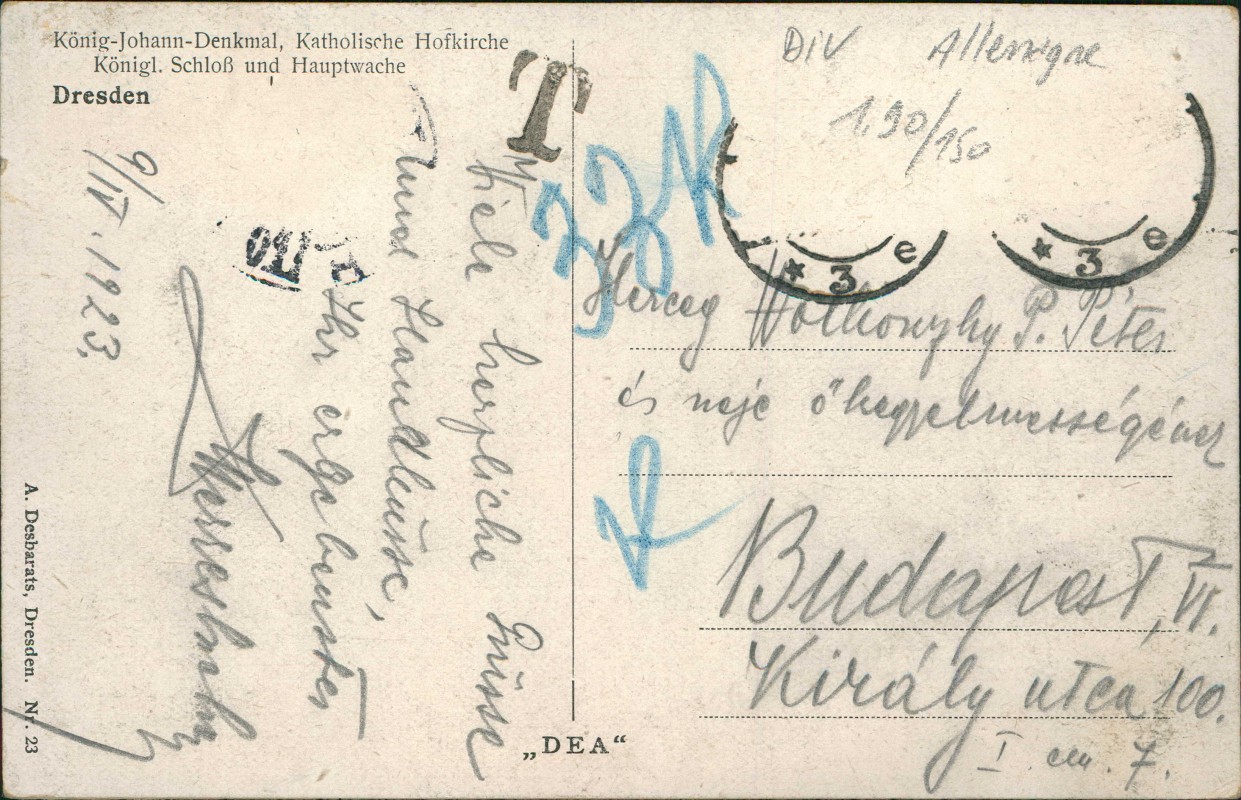 König-Johann-Denkmal, Katholische Hofkirche
Königl. Schloß und Hauptwache
Dresden
9/IV. 1923.
Viele herzliche Grüsse
und Handküsse,
Ihr ergebenster
A. Desbarats, Dresden. Nr. 23
"DEA"
T
DIV Allemagne
1,90/150
* 3 e
* 3 e
Herceg P. Péter
és neje őhegyelmességének
Budapest, VI.
Király utca 100.
I em. 7.